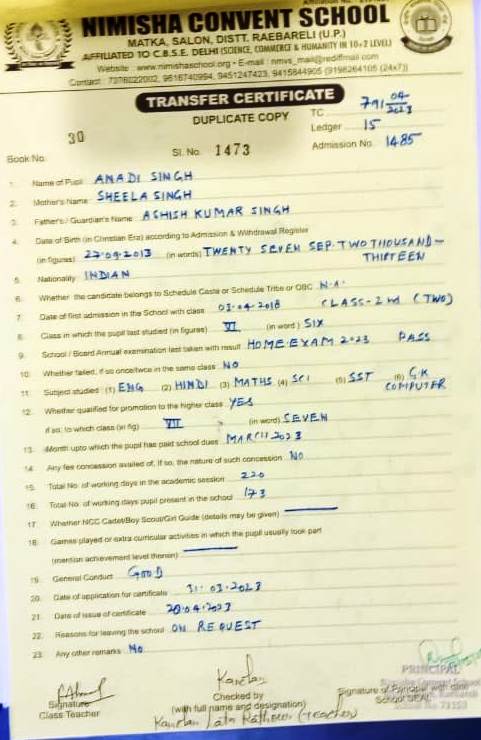 NIMISHA CONVENT SCHOOL
MATKA, SALON, DISTT. RAEBARELI (U.P.)
AFFILIATED TO C.B.S.E. DELHI (SCIENCE, COMMERCE & HUMANITY IN 10+2 LEVEL)
Website : www.nimishaschool.org • E-mail : nmvs_mail@rediffmail.com
Contact : 7376022002, 9616740994, 9451247423, 9415844905 (9198264105 (24x7))
TRANSFER CERTIFICATE
DUPLICATE COPY
TC 791 04/2023
Ledger 15
Book No. 30 Sl. No. 1473 Admission No. 1485
1. Name of Pupil ANADI SINGH
2. Mother's Name SHEELA SINGH
3. Father's / Guardian's Name ASHISH KUMAR SINGH
4. Date of Birth (in Christian Era) according to Admission & Withdrawal Register
(in figures) 27.09.2013 (in words) TWENTY SEVEN SEP. TWO THOUSAND-
THIRTEEN
5. Nationality INDIAN
6. Whether the candidate belongs to Schedule Caste or Schedule Tribe or OBC N.A.
7. Date of first admission in the School with class 03-04-2018 CLASS-2nd (TWO)
8. Class in which the pupil last studied (in figures) VI (in word) SIX
9. School / Board Annual examination last taken with result HOME EXAM 2023 PASS
10. Whether failed, if so once/twice in the same class NO
11. Subject studied (1) ENG (2) HINDI (3) MATHS (4) SCI (5) SST (6) G.K
COMPUTER
12. Whether qualified for promotion to the higher class YES
if so, to which class (in fig) VII (in word) SEVEN
13. Month upto which the pupil has paid school dues MARCH 2023
14. Any fee concession availed of, if so, the nature of such concession NO
15. Total No. of working days in the academic session 220
16. Total No. of working days pupil present in the school 173
17. Whether NCC Cadet/Boy Scout/Girl Guide (details may be given)
18. Games played or extra curricular activities in which the pupil usually took part
(mention achievement level therein)
19. General Conduct GOOD
20. Date of application for certificate 31.03.2023
21. Date of issue of certificate 20.04.2023
22. Reasons for leaving the school ON REQUEST
23. Any other remarks NO
PRINCIPAL
Signature
Class Teacher
Checked by
(with full name and designation)
Signature of Principal with date
School SEAL
Kanchan Lata Rathore (teacher)